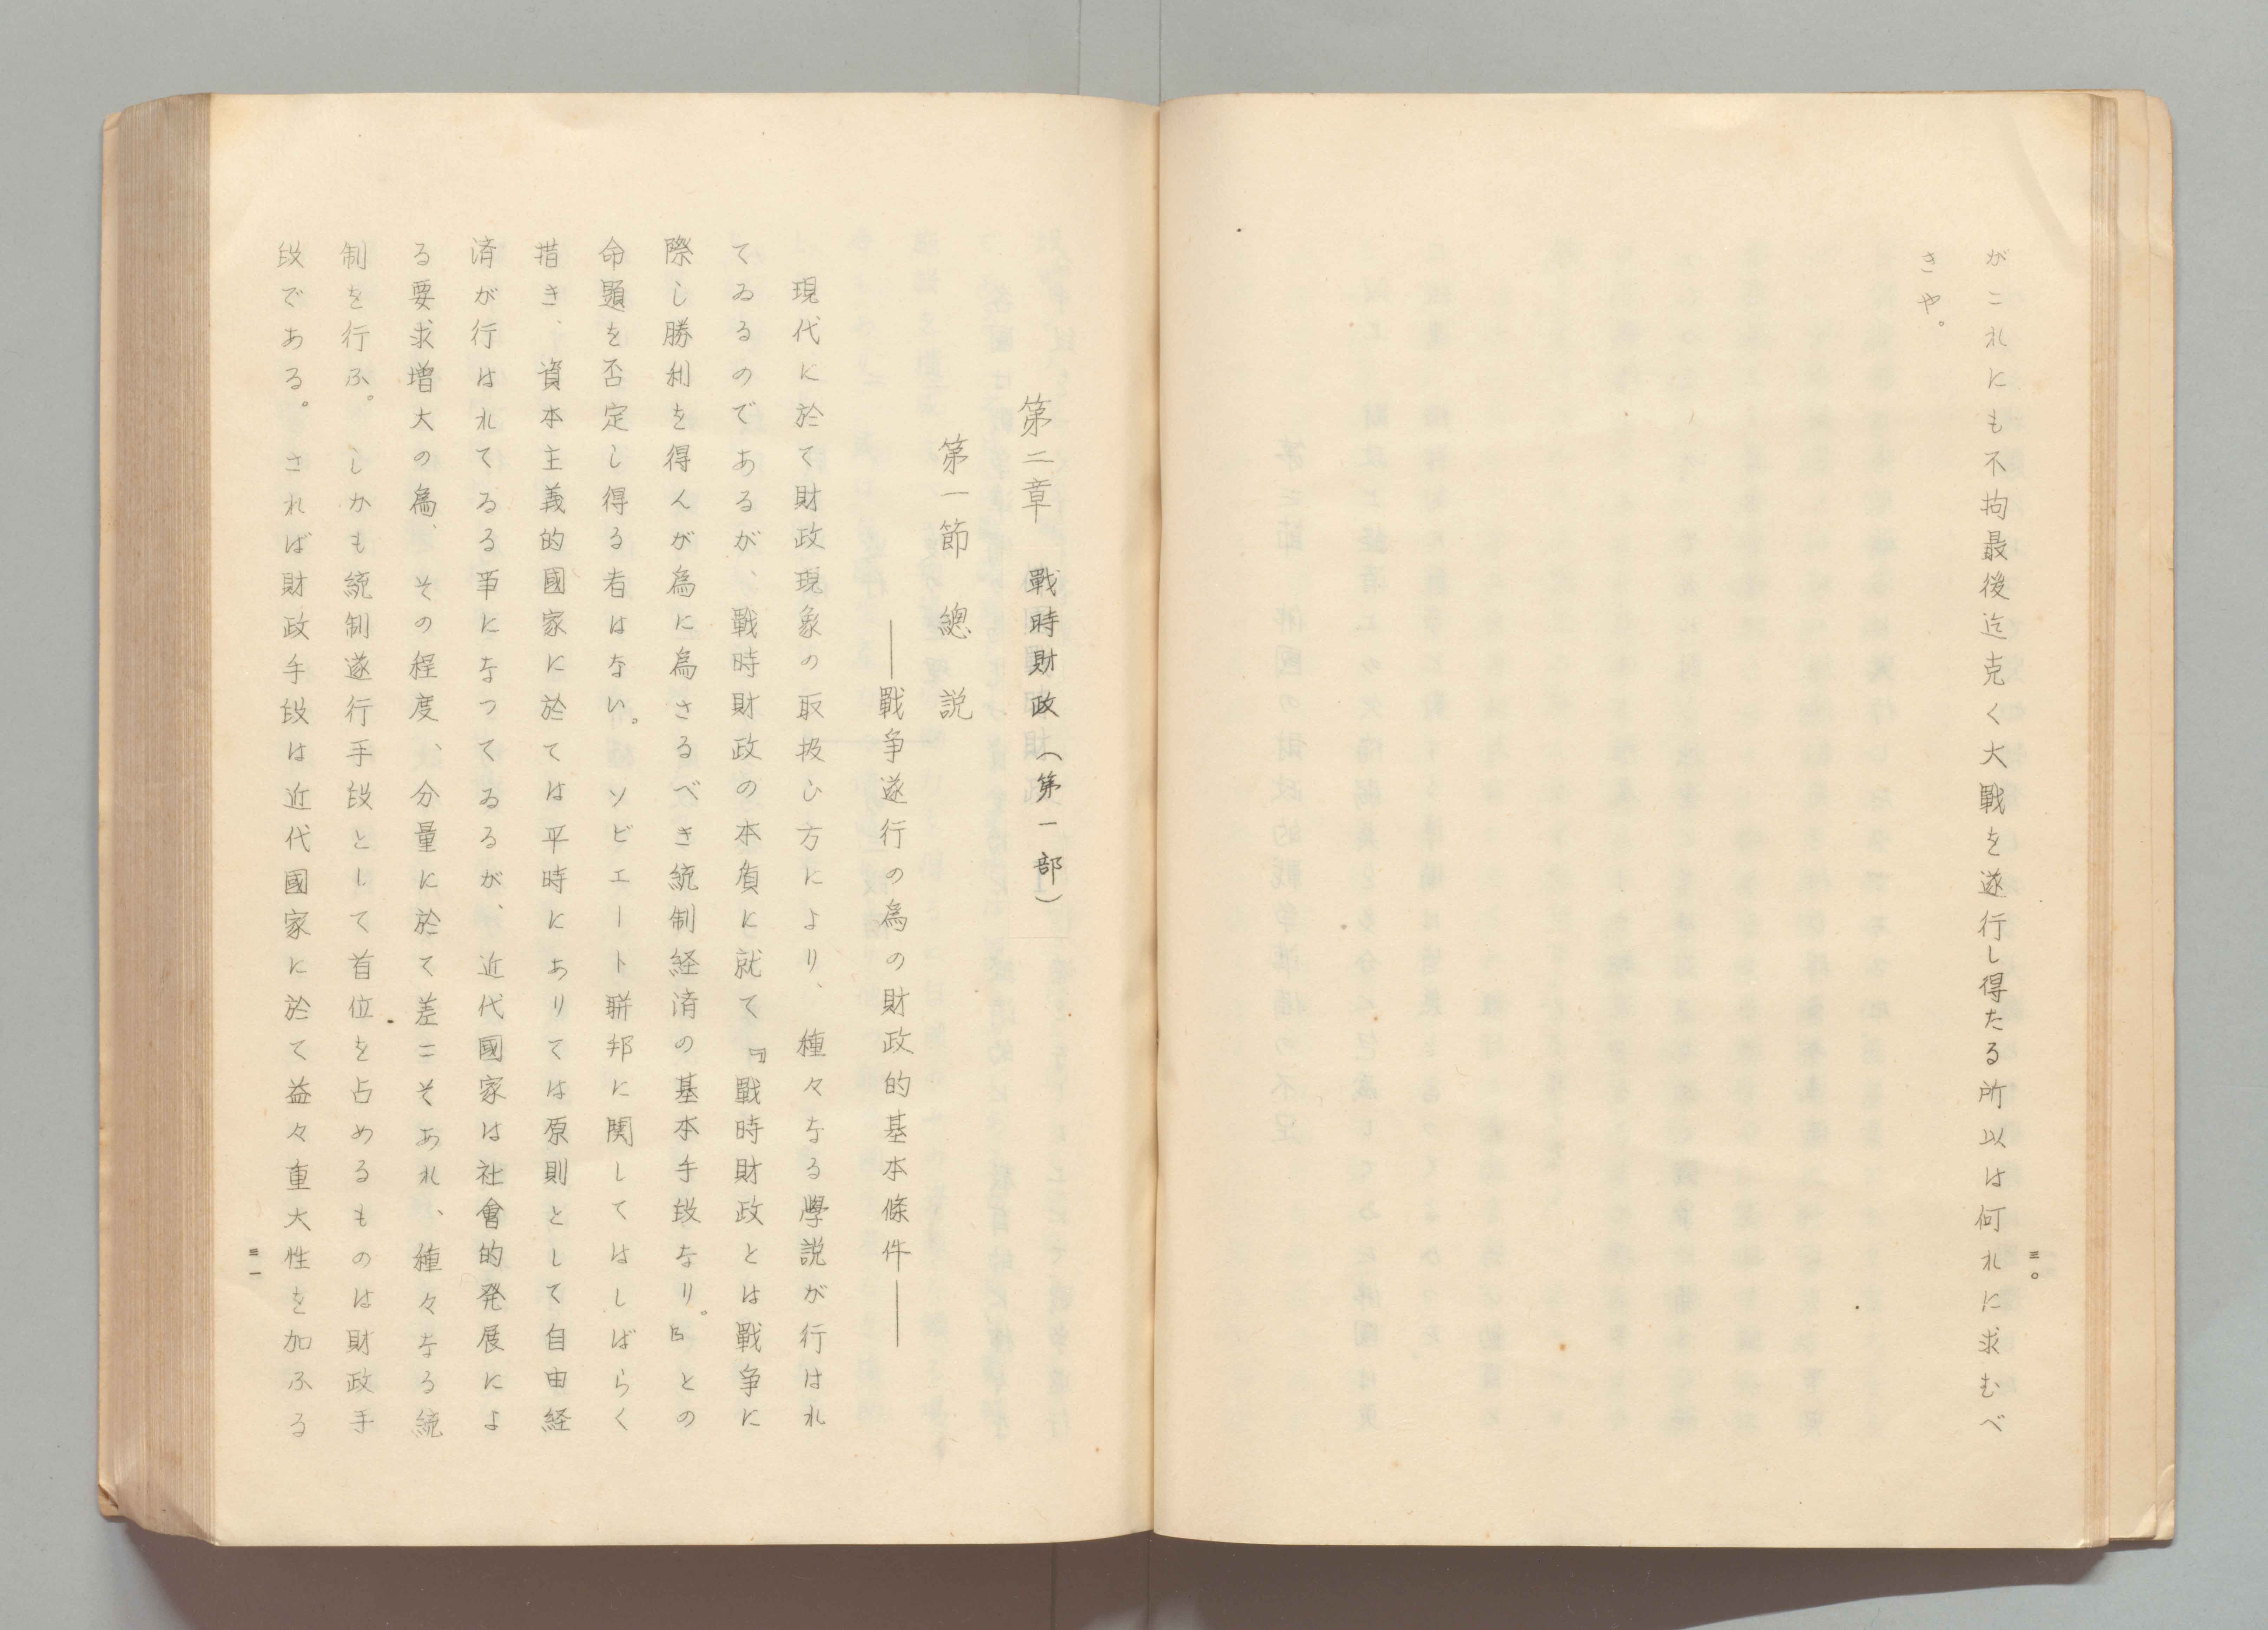 がこれにも不拘最後迄克く大戰を遂行し得たる所以は何れに求むべ
きや。
三〇
第二章　戰時財政（第一部）
第一節　總説
――戰争遂行の為の財政的基本條件――
現代に於て財政現象の取扱ひ方により、種々なる學説が行はれ
てゐるのであるが、戰時財政の本質に就て『戰時財政とは戰争に
際し勝利を得んが為に為さるべき統制経済の基本手段なり。』との
命題を否定し得る者はない。ソビエート聯邦に関してはしばらく
措き、資本主義的國家に於ては平時にありては原則として自由経
済が行はれてゐる事になつてゐるが、近代國家は社會的発展によ
る要求増大の為、その程度、分量に於て差こそあれ、種々なる統
制を行ふ。しかも統制遂行手段として首位を占めるものは財政手
段である。されば財政手段は近代國家に於て益々重大性を加ふる
三一